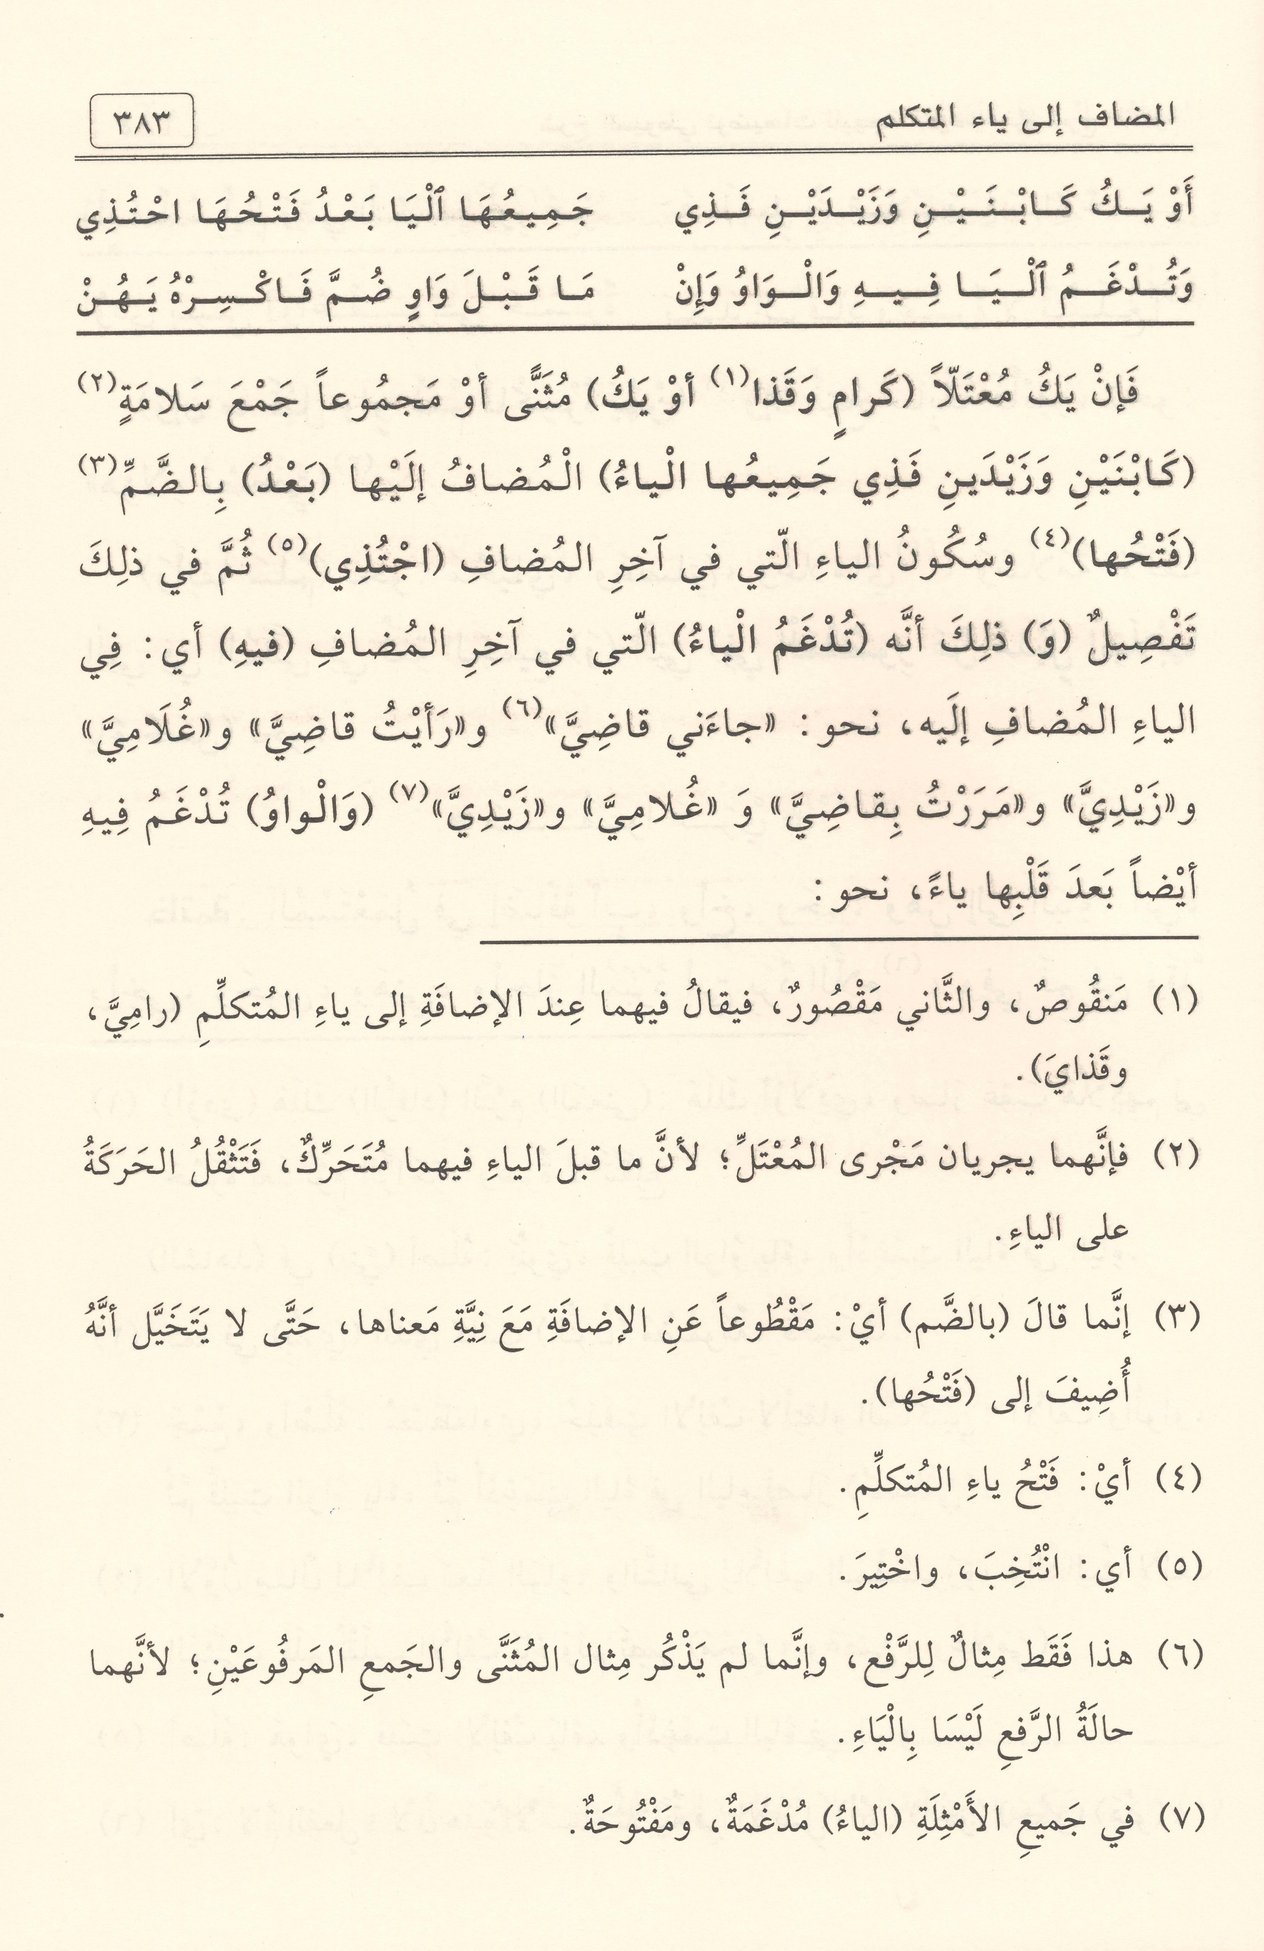 المضاف إلى ياء المتكلم
٣٨٣
أَوْ يَـكُ كَـابْـنَـيْـنِ وَزَيْـدَيْـنِ فَـذِي جَـمِيعُـهَا ٱلْيَا بَعْدُ فَتْحُهَا احْتُذِي
وَتُـدْغَـمُ ٱلْـيَـا فِـيـهِ وَالْـوَاوُ وَإِنْ مَـا قَـبْـلَ وَاوٍ ضُمَّ فَـاكْـسِـرْهُ يَـهُـنْ
فَإنْ يَكُ مُعْتَلّاً (كَرامٍ وَقَذا(١) أوْ يَكُ) مُثَنًّى أوْ مَجمُوعاً جَمْعَ سَلامَةٍ(٢)
(كَابْنَيْنِ وَزَيْدَينِ فَذِي جَمِيعُها الْياءُ) الْمُضافُ إلَيْها (بَعْدُ) بِالضَّمِّ(٣)
(فَتْحُها)(٤) وسُكُونُ الياءِ الّتي في آخِرِ المُضافِ (اجْتُذِي)(٥) ثُمَّ في ذلِكَ
تَفْصِيلٌ (وَ) ذلِكَ أنَّه (تُدْغَمُ الْياءُ) الّتي في آخِرِ المُضافِ (فيهِ) أي: فِي
الياءِ المُضافِ إلَيه، نحو: «جاءَني قاضِيَّ»(٦) و«رَأيْتُ قاضِيَّ» و«غُلَامِيَّ»
و«زَيْدِيَّ» و«مَرَرْتُ بِقاضِيَّ» وَ «غُلامِيَّ» و«زَيْدِيَّ»(٧) (وَالْواوُ) تُدْغَمُ فِيهِ
أيْضاً بَعدَ قَلْبِها ياءً، نحو:
(١) مَنقُوصٌ، والثَّاني مَقْصُورٌ، فيقالُ فيهما عِندَ الإضافَةِ إلى ياءِ المُتكلِّمِ (رامِيَّ،
وقَذايَ).
(٢) فإنَّهما يجريان مَجْرى المُعْتَلِّ؛ لأنَّ ما قبلَ الياءِ فيهما مُتَحَرِّكٌ، فَتَثْقُلُ الحَرَكَةُ
على الياءِ.
(٣) إنَّما قالَ (بالضَّم) أيْ: مَقْطُوعاً عَنِ الإضافَةِ مَعَ نِيَّةِ مَعناها، حَتَّى لا يَتَخَيَّل أنَّهُ
أُضِيفَ إلى (فَتْحُها).
(٤) أيْ: فَتْحُ ياءِ المُتكلِّمِ.
(٥) أي: انْتُخِبَ، واخْتِيرَ.
(٦) هذا فَقَط مِثالٌ لِلرَّفْع، وإنَّما لم يَذْكُر مِثال المُثَنَّى والجَمعِ المَرفُوعَيْنِ؛ لأنَّهما
حالَةُ الرَّفعِ لَيْسَا بِالْيَاءِ.
(٧) في جَميعِ الأَمْثِلَةِ (الياءُ) مُدْغَمَةٌ، ومَفْتُوحَةٌ.